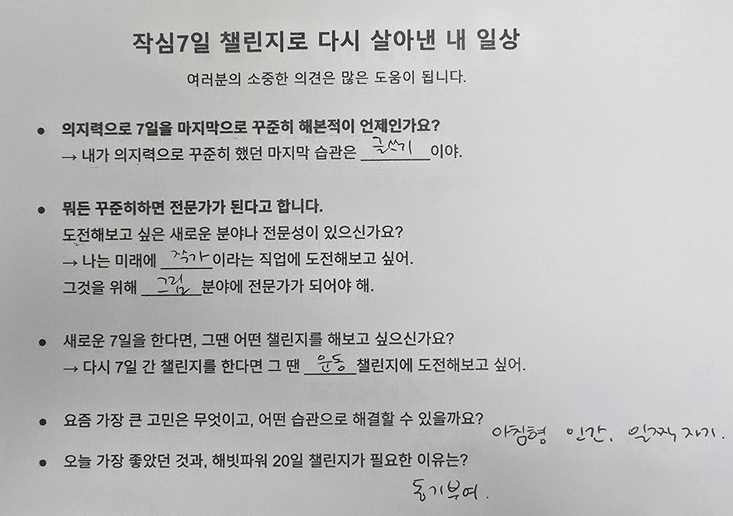 작심7일 챌린지로 다시 살아낸 내 일상
여러분의 소중한 의견은 많은 도움이 됩니다.
● 의지력으로 7일을 마지막으로 꾸준히 해본적이 언제인가요?
→ 내가 의지력으로 꾸준히 했던 마지막 습관은 글쓰기이야.
● 뭐든 꾸준히하면 전문가가 된다고 합니다.
도전해보고 싶은 새로운 분야나 전문성이 있으신가요?
→ 나는 미래에 작가이라는 직업에 도전해보고 싶어.
그것을 위해 그림 분야에 전문가가 되어야 해.
● 새로운 7일을 한다면, 그땐 어떤 챌린지를 해보고 싶으신가요?
→ 다시 7일 간 챌린지를 한다면 그 땐 운동 챌린지에 도전해보고 싶어.
● 요즘 가장 큰 고민은 무엇이고, 어떤 습관으로 해결할 수 있을까요? 아침형 인간, 일찍 자기.
● 오늘 가장 좋았던 것과, 해빗파워 20일 챌린지가 필요한 이유는?
동기부여.